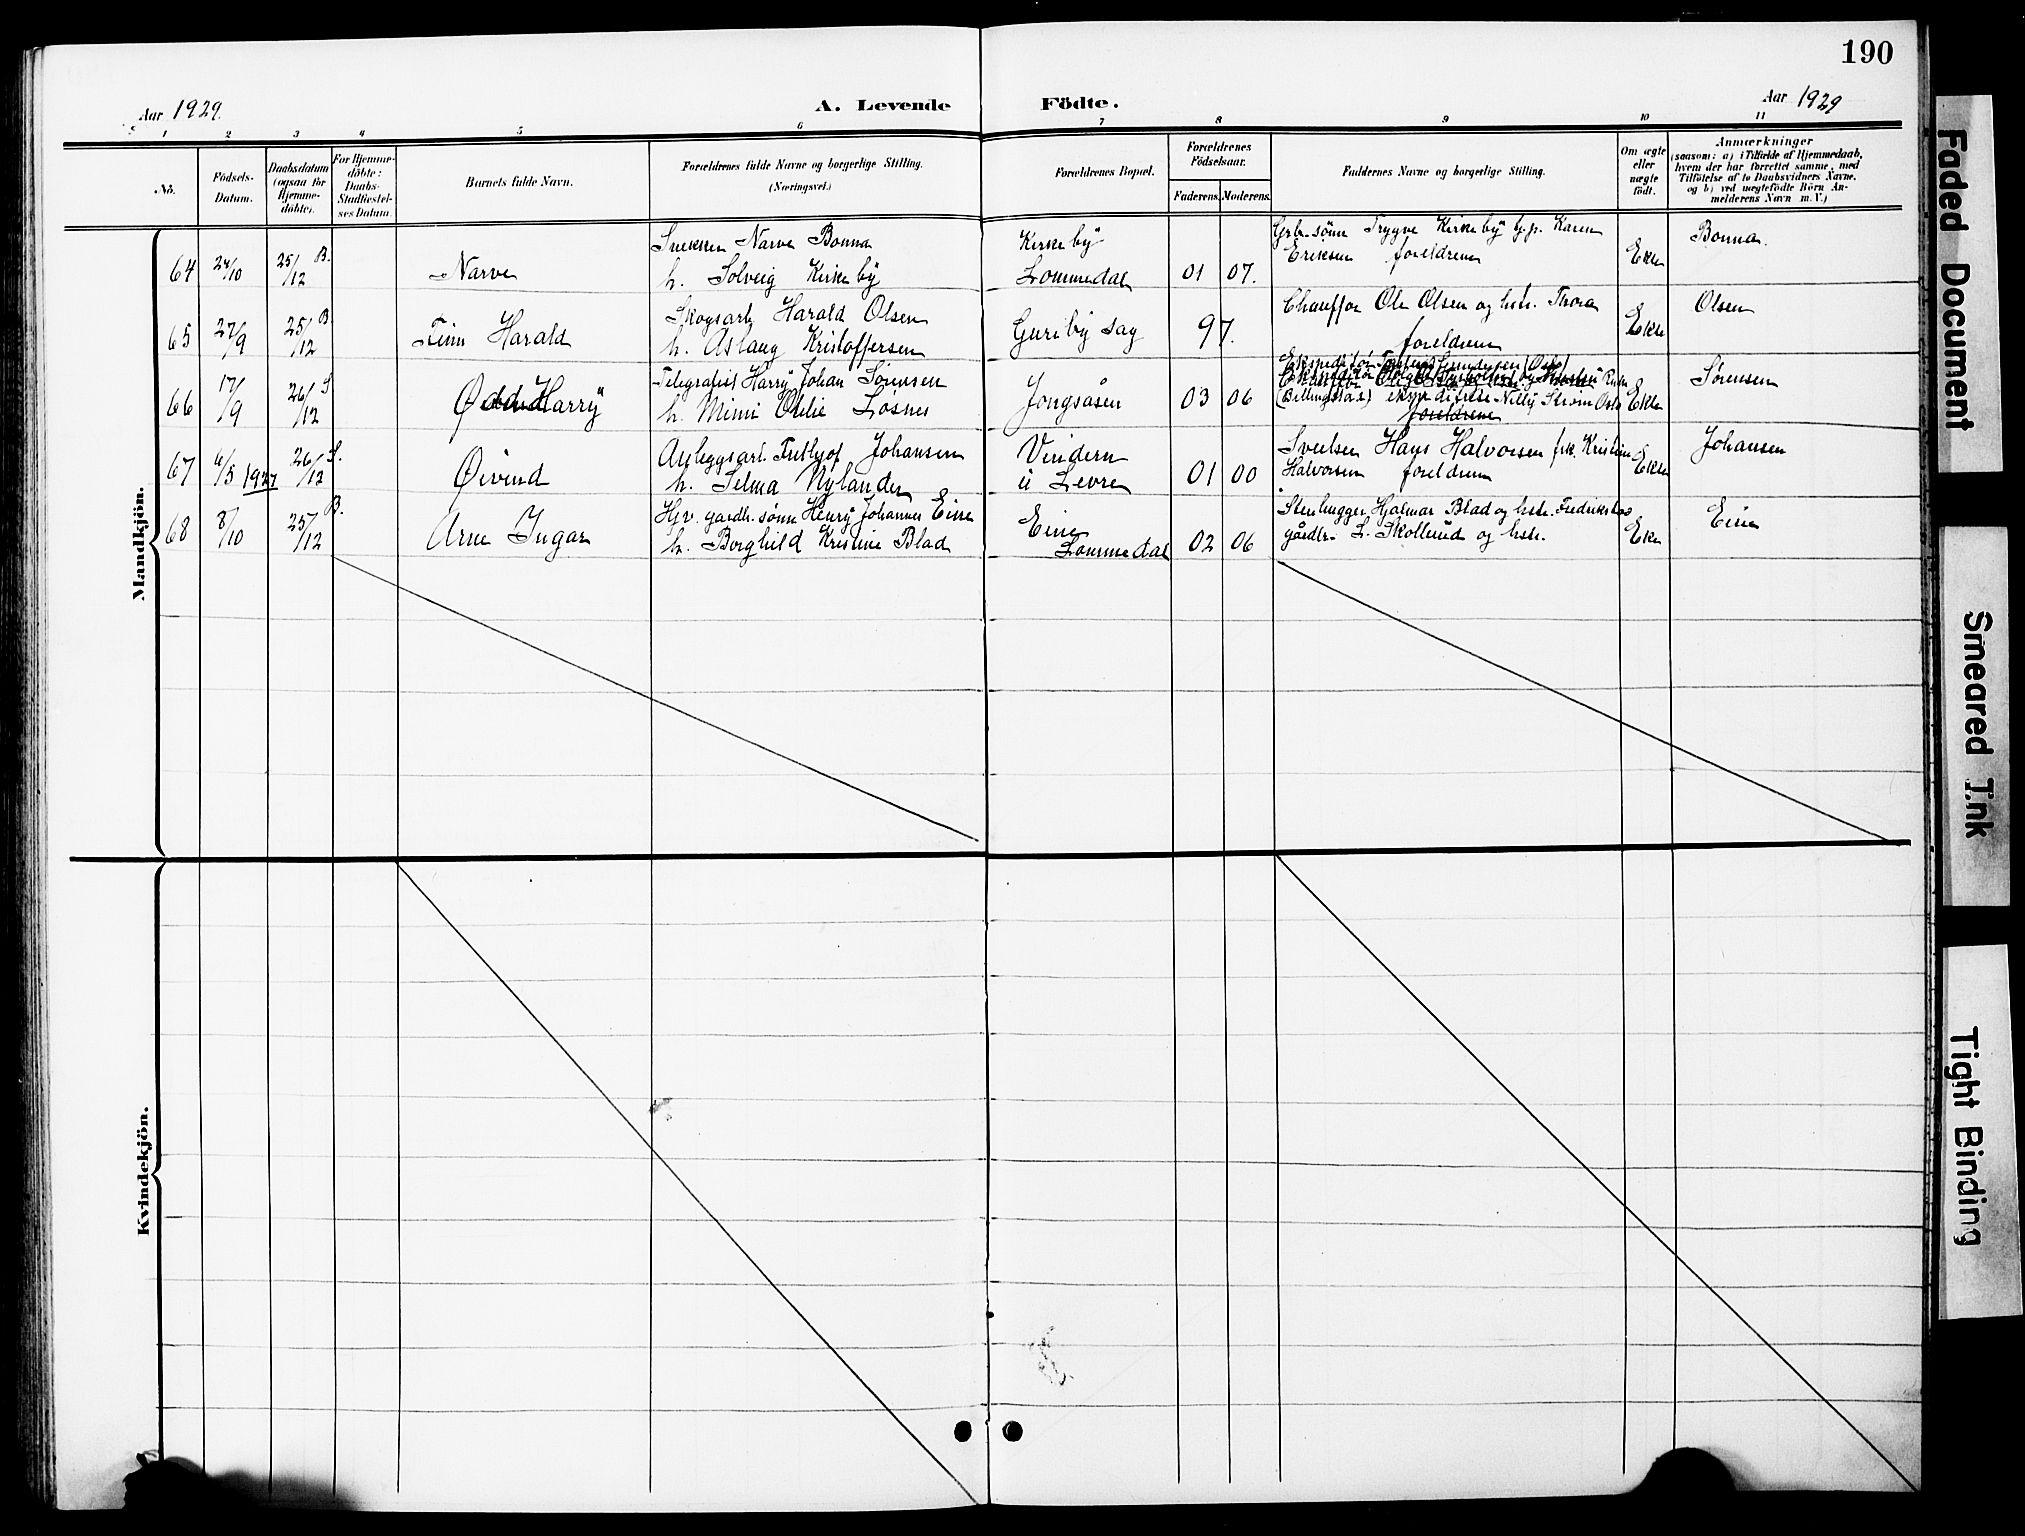 190
Aar 1929.
A. Levende Födte.
Aar 1929
1 2 3 4 5 6 7 8 9 10 11
No.
Födsels-
Datum.
Daabsdatum
(ogsaa for
Hjemme-
döbte).
For Hjemme-
döbte:
Daabs-
Stadfæstel-
ses Datum
Barnets fulde Navn.
Forældrenes fulde Navne og borgerlige Stilling.
(Næringsvei.)
Forældrenes Bopæl.
Forældrenes
Födselsaar.
Faderens. Moderens.
Faddernes Navne og borgerlige Stilling.
Om ægte
eller
uægte
födt.
Anmærkninger
(saasom: a) i Tilfælde af Hjemmedaab,
hvem der har forrettet samme, med
Tilföielse af to Daabsvidners Navne.
og b) ved uægtefödte Börn An-
melderens Navn m. V.)
Mandkjön.
64 24/10 25/12 B.
Narve
Narve Bonna
h. Solveig Kirkeby
Kirkeby
Lommedal
01 07.
Grb. sønn Trygve Kirkeby Karen
Eriksen foreldrene
Ekte
Bonna.
65 27/9 25/12 B.
Finn Harald
Skogsarb. Harald Olsen
h. Aslaug Kristoffersen
Guriby sag
97.
Chauffør Ole Olsen og hstr. Thora
foreldrene
Ekte
Olsen
66 17/9 26/12 S
Odd Harry
Telegrafist Harry Johan Sørensen
h. Mimi Otilie Løsnes
Jongsåsen
03 06
(Billingstad) Nilly Strøm Oslo
foreldrene
Ekte
Sørensen
67 4/5 1927 26/12 S.
Øivind
Anleggsarb. Frithjof Johansen
h. Selma Nylander
Vindern
Levre
01 00
Hans Halvorsen frk. Kristine
Halvorsen foreldrene
Ekte
Johansen
68 8/10 25/12 B.
Arne Ingar
Hjv. gardbr. sønn Henry Johannes Eine
h. Borghild Kristine Blad
Eine
Lommedal
02 06
Stenhugger Hjalmar Blad og hstr. Fredrikstad
gårdbr. L. Skollerud og hstr.
Ekte
Eine
Kvindekjön.
Faded Document
Smeared Ink
Tight Binding